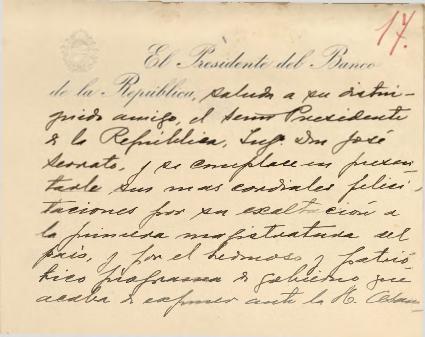 17.
El Presidente del Banco
de la República, saluda a su distin-
guido amigo, el Señor Presidente
de la República, Ing. Don José
Serrato, y se complace en presen-
tarle sus mas cordiales felici-
taciones por su exaltación a
la primera magistratura del
país, y por el hermoso y patrió-
tico programa de gobierno que
acaba de exponer ante la H.